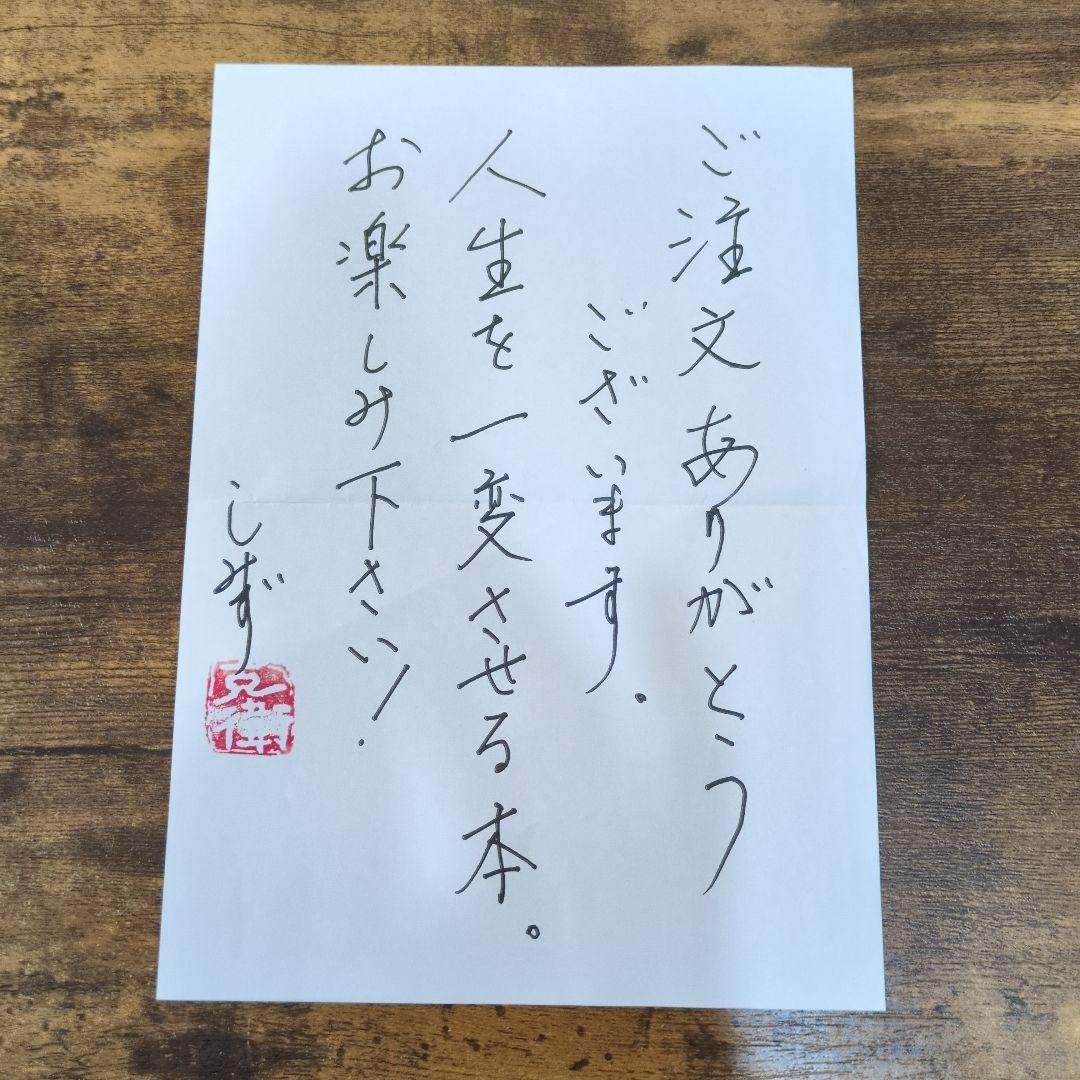 ご注文ありがとう
ございます。
人生を一変させる本。
お楽しみ下さい!
しみず